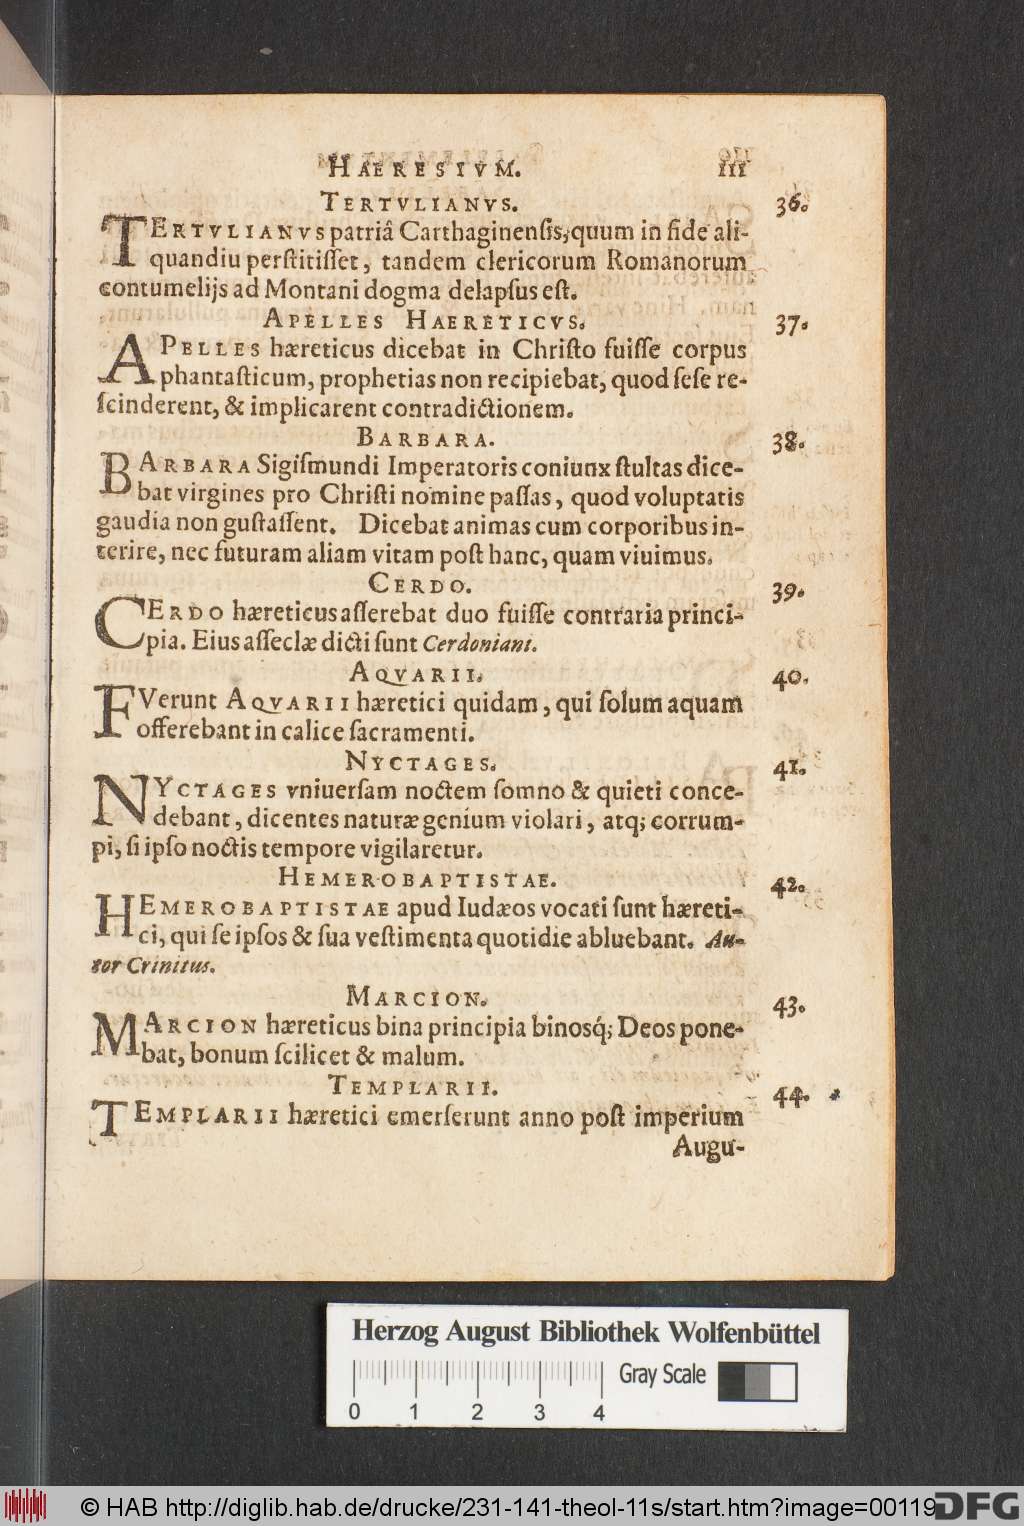 HAERESIVM. 111
TERTVLIANVS. 36.
TERTVLIANVS patriâ Carthaginensis, quum in fide ali-
quandiu perstitisset, tandem clericorum Romanorum
contumelijs ad Montani dogma delapsus est.
APELLES HAERETICVS. 37.
APELLES hæreticus dicebat in Christo fuisse corpus
phantasticum, prophetias non recipiebat, quod sese re-
scinderent, & implicarent contradictionem.
BARBARA. 38.
BARBARA Sigismundi Imperatoris coniunx stultas dice-
bat virgines pro Christi nomine passas, quod voluptatis
gaudia non gustassent. Dicebat animas cum corporibus in-
terire, nec futuram aliam vitam post hanc, quam viuimus.
CERDO. 39.
CERDO hæreticus asserebat duo fuisse contraria princi-
pia. Eius asseclæ dicti sunt Cerdoniani.
AQVARII. 40.
FVerunt AQVARII hæretici quidam, qui solum aquam
offerebant in calice sacramenti.
NYCTAGES. 41.
NYCTAGES vniuersam noctem somno & quieti conce-
debant, dicentes naturæ genium violari, atq; corrum-
pi, si ipso noctis tempore vigilaretur.
HEMEROBAPTISTAE. 42.
HEMEROBAPTISTAE apud Iudæos vocati sunt hæreti-
ci, qui se ipsos & sua vestimenta quotidie abluebant. Au-
tor Crinitus.
MARCION. 43.
MARCION hæreticus bina principia binosq́; Deos pone-
bat, bonum scilicet & malum.
TEMPLARII. 44.
TEMPLARII hæretici emerserunt anno post imperium
Augu-
Herzog August Bibliothek Wolfenbüttel
Gray Scale
0 1 2 3 4
© HAB http://diglib.hab.de/drucke/231-141-theol-11s/start.htm?image=00119
DFG